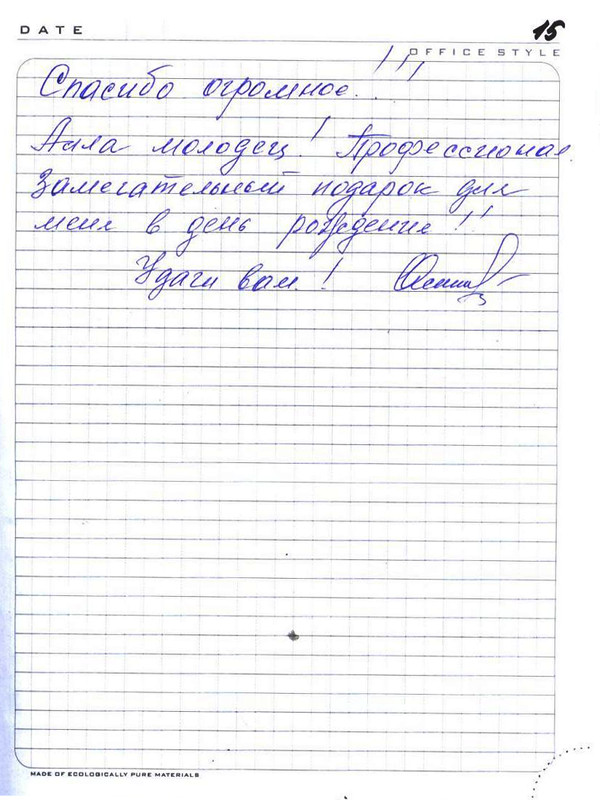 DATE
15
OFFICE STYLE
Спасибо огромное!!!
Алла молодец! Профессионал.
Замечательный подарок для
меня в день рождения!!
Удачи вам!
MADE OF ECOLOGICALLY PURE MATERIALS